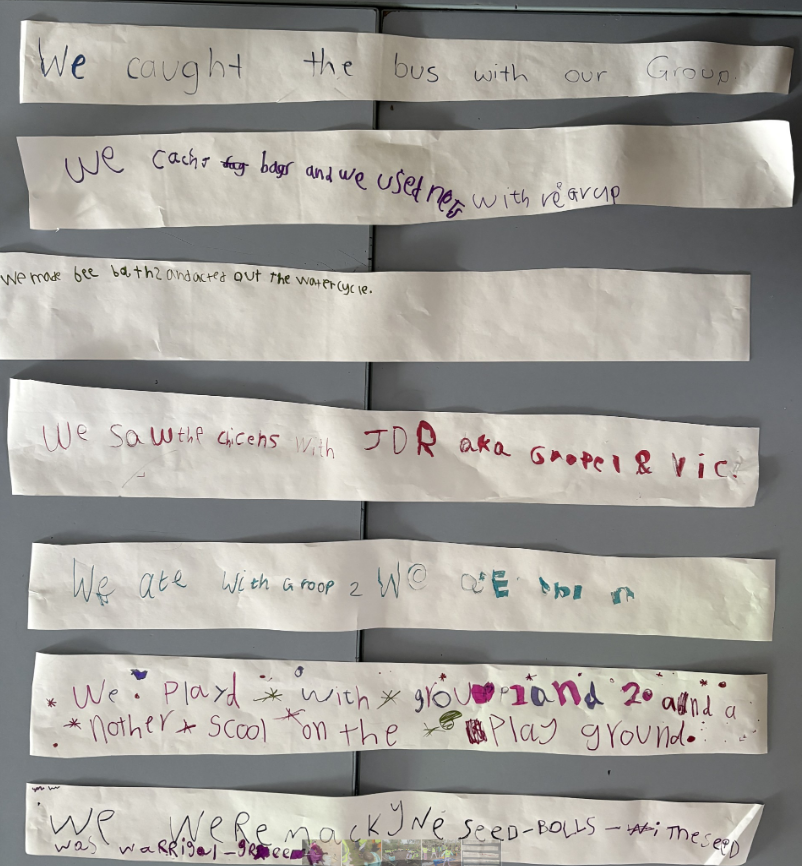 We caught the bus with our Group.
We cachs bags and we used nets with rearup
We made bee baths and acted out the watercycle.
We saw the chicens with JDR aka Groper & Vic.
We ate with Groop 2 We
* We playd * with * group 1 and 2 and a
* nother * scool * on the * Play ground.
We WeRe mackyNe SeeD-BOLLS - the seeD
was waRRigal-